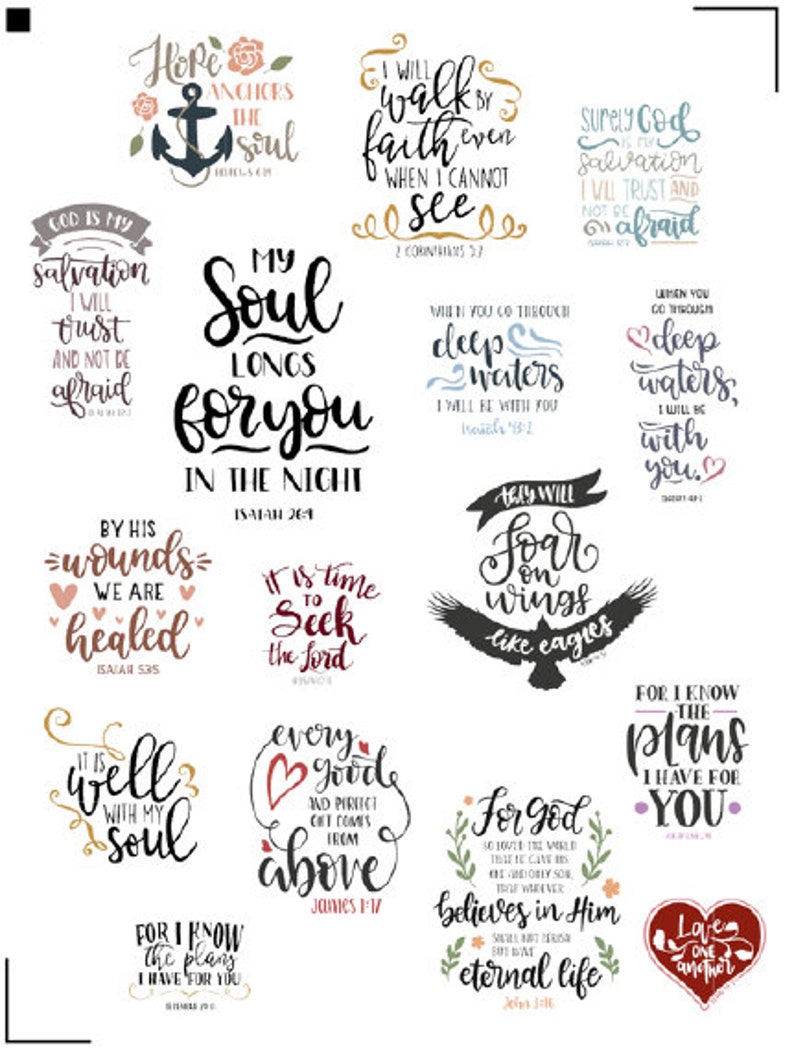 Hope
ANCHORS
THE
soul
HEBREWS 6:19
I WILL
walk BY
faith even
WHEN I CANNOT
see
2 CORINTHIANS 5:7
SURELY GOD
IS MY
salvation
I WILL TRUST AND
NOT BE
afraid
ISAIAH 12:2
GOD IS MY
salvation
I WILL
trust
AND NOT BE
afraid
MY
Soul
LONGS
for you
IN THE NIGHT
ISAIAH 26:9
WHEN YOU GO THROUGH
deep
waters
I WILL BE WITH YOU
Isaiah 43:2
WHEN YOU
GO THROUGH
deep
waters,
I WILL BE
with
you.
BY HIS
wounds
WE ARE
healed
ISAIAH 53:5
it is time
TO
Seek
the Lord
they WILL
Soar
on
wings
like eagles
FOR I KNOW
THE
plans
I HAVE FOR
YOU
IT IS
well
WITH MY
soul
every
good
AND PERFECT
GIFT COMES
FROM
above
James 1:17
For God
SO LOVED THE WORLD
THAT HE GAVE HIS
ONE AND ONLY SON,
THAT WHOEVER
believes in Him
SHALL NOT PERISH
BUT HAVE
eternal life
John 3:16
FOR I KNOW
the plans
I HAVE FOR YOU
JEREMIAH 29:11
Love
ONE
another